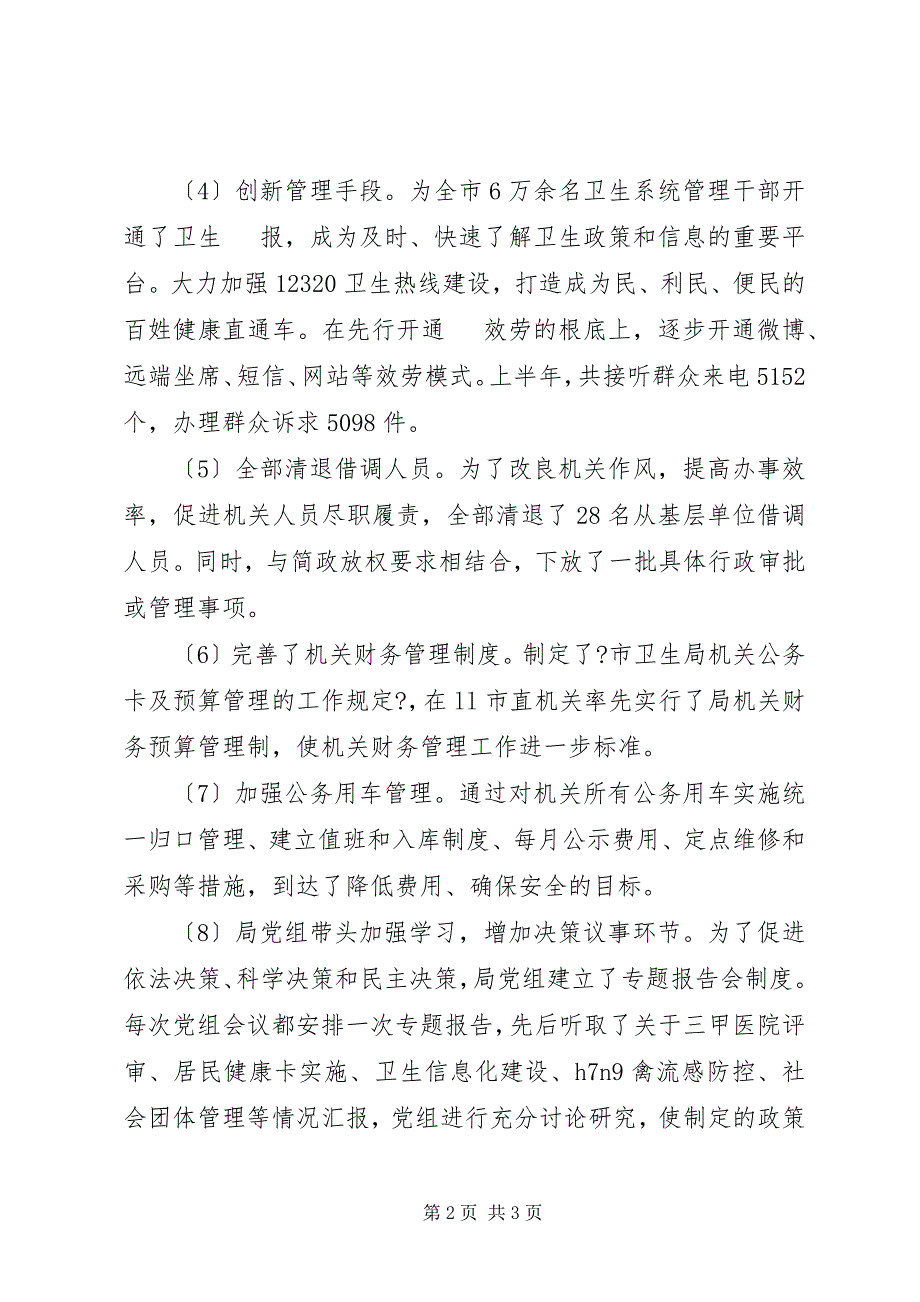 〔4〕创新管理手段。为全市 6 万余名卫生系统管理干部开
通了卫生  报，成为及时、快速了解卫生政策和信息的重要平
台。大力加强 12320 卫生热线建设，打造成为民、利民、便民的
百姓健康直通车。在先行开通  效劳的根底上，逐步开通微博、
远端坐席、短信、网站等效劳模式。上半年，共接听群众来电 5152
个，办理群众诉求 5098 件。
〔5〕全部清退借调人员。为了改良机关作风，提高办事效
率，促进机关人员尽职履责，全部清退了 28 名从基层单位借调
人员。同时，与简政放权要求相结合，下放了一批具体行政审批
或管理事项。
〔6〕完善了机关财务管理制度。制定了?市卫生局机关公务
卡及预算管理的工作规定?，在 ll 市直机关率先实行了局机关财
务预算管理制，使机关财务管理工作进一步标准。
〔7〕加强公务用车管理。通过对机关所有公务用车实施统
一归口管理、建立值班和入库制度、每月公示费用、定点维修和
采购等措施，到达了降低费用、确保安全的目标。
〔8〕局党组带头加强学习，增加决策议事环节。为了促进
依法决策、科学决策和民主决策，局党组建立了专题报告会制度。
每次党组会议都安排一次专题报告，先后听取了关于三甲医院评
审、居民健康卡实施、卫生信息化建设、h7n9 禽流感防控、社
会团体管理等情况汇报，党组进行充分讨论研究，使制定的政策
第 2 页 共 3 页